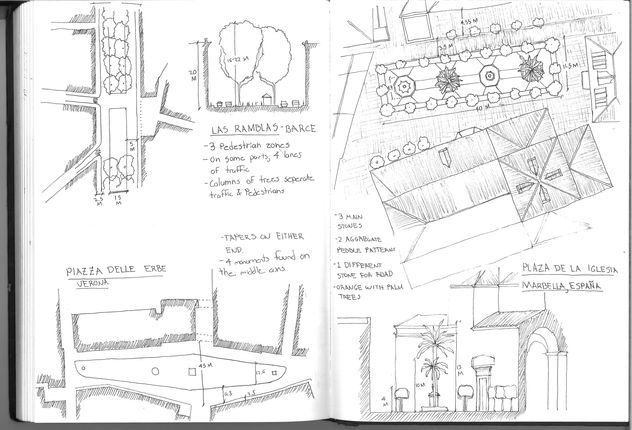 20 M
16-22 M
LAS RAMBLAS - BARCE
- 3 Pedestrian zones
- On some parts, 4 lanes
of traffic
- Columns of trees seperate
traffic & Pedestrians
5 M
2.5 M
15 M
- TAPERS ON EITHER
END
- 4 monuments found on
the middle axis
PIAZZA DELLE ERBE
VERONA
45 M
4.55 M
40 M
- 3 MAIN
STONES
- 2 AGGREGATE
PEBBLE PATTERNS
- 1 DIFFERENT
STONE FOR ROAD
- ORANGE WITH PALM
TREES
PLAZA DE LA IGLESIA
MARBELLA, ESPAÑA
4 M
10 M